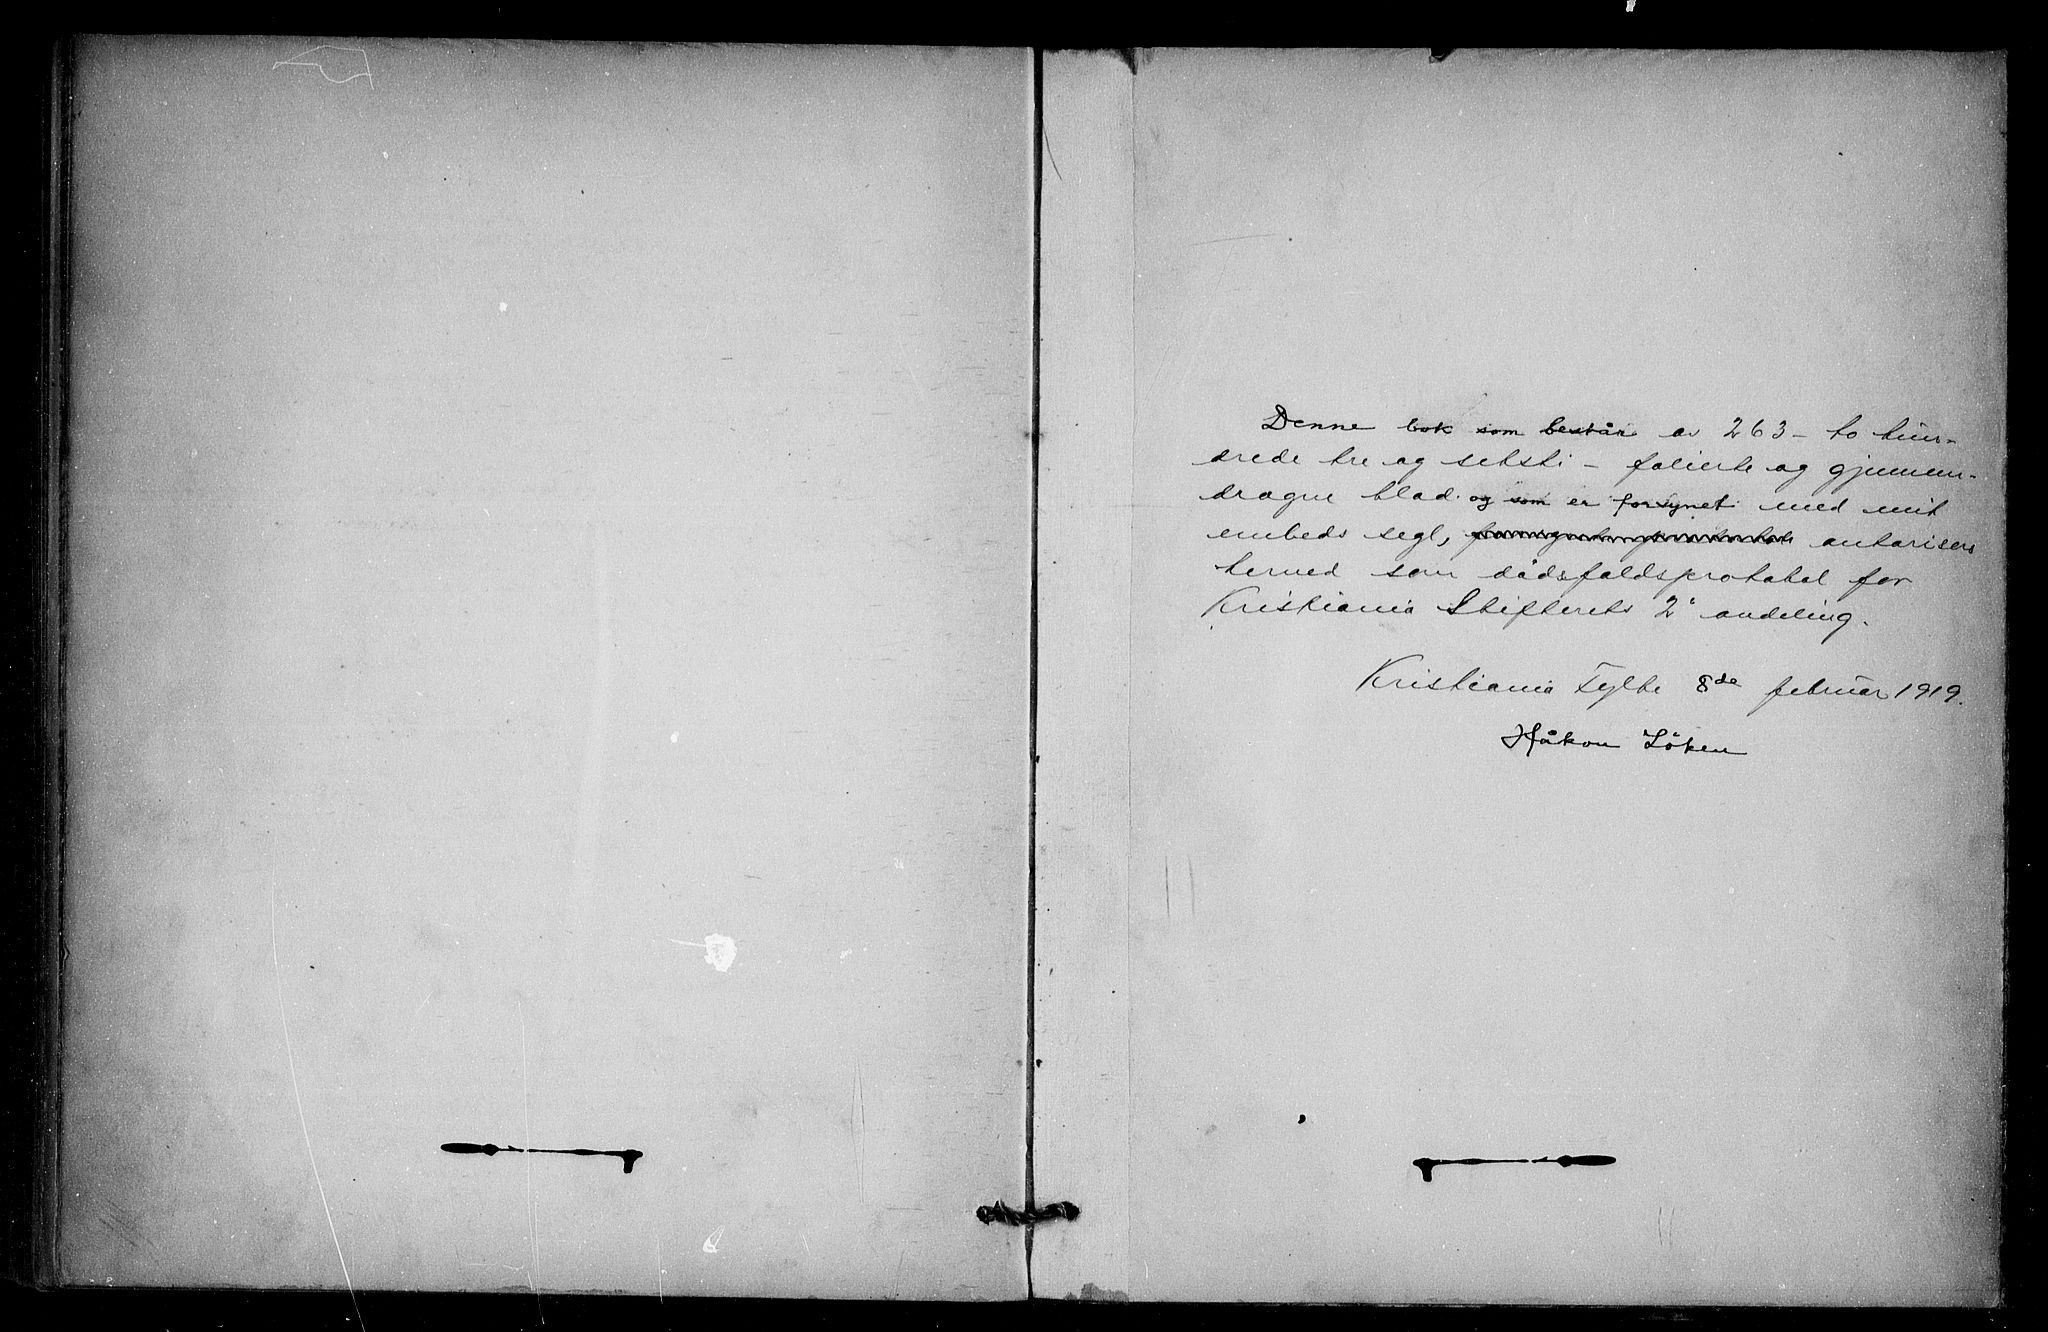 Denne bok som består av 263 – to hun-
drede tre og seksti – folierte og gjennem-
dragne blad og som er forsynet med mit
embeds segl, autorisers
herved som dødsfaldsprotokol for
Kristiania Skifterets 2' avdeling.
Kristiania Fylke 8de februar 1919.
Håkon Löken